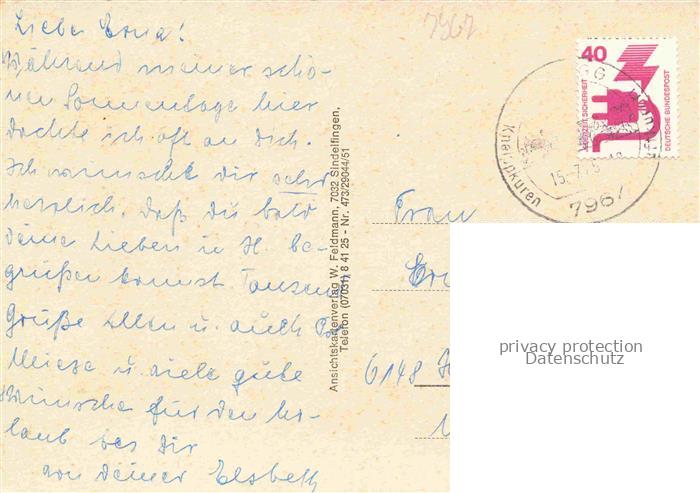 Liebe Erna!
Während meiner schö-
nen Sonnentage hier
dachte ich oft an Dich.
Ich wünsche Dir sehr
herzlich, daß Du bald
deine Lieben in H. be-
grüßen kannst. Tausend
Grüße Ellen u. auch
Miese u. viele gute
Wünsche für den Ur-
laub bei Dir
von deiner Elsbeth
Ansichtskartenverlag W. Feldmann, 7032 Sindelfingen,
Telefon (07031) 8 41 25 - Nr. 473/29044/51
7967
40
JEDERZEIT SICHERHEIT
DEUTSCHE BUNDESPOST
Kneippkuren
15.-7.75
7967
Frau
6148
privacy protection
Datenschutz